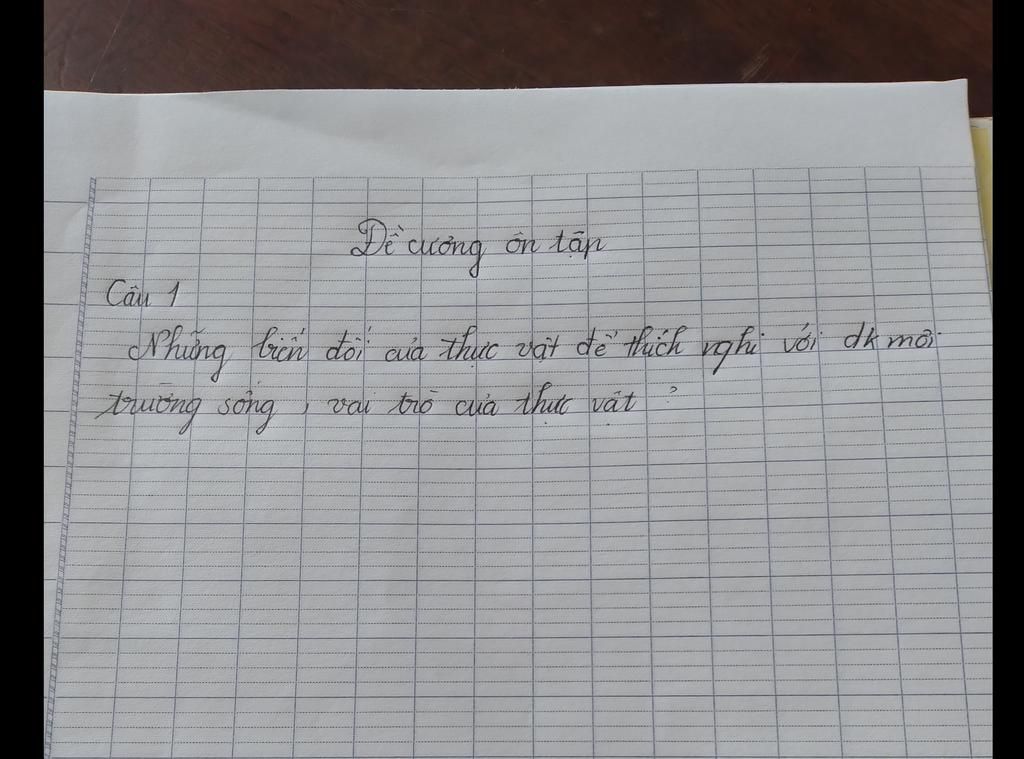 Đề cương ôn tập
Câu 1
Những biến đổi của thực vật để thích nghi với dk môi
trường sống, vai trò của thực vật ?